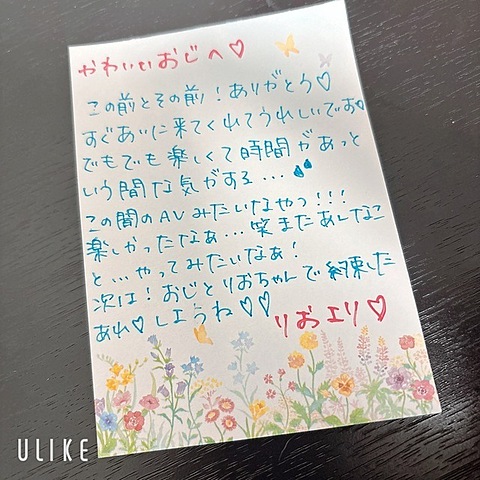 かわいいおじへ♡
この前とその前！ありがとう♡
すぐあいに来てくれてうれしいでお♡
でもでも楽しくて時間があっと
いう間な気がする…
この間のAVみたいなやつ！！！
楽しかったなぁ…笑またあしなこ
と…やってみたいなぁ！
次は！おじとりおちゃんで約束した
あれ♡しようね♡♡
りおエリ♡
ULIKE